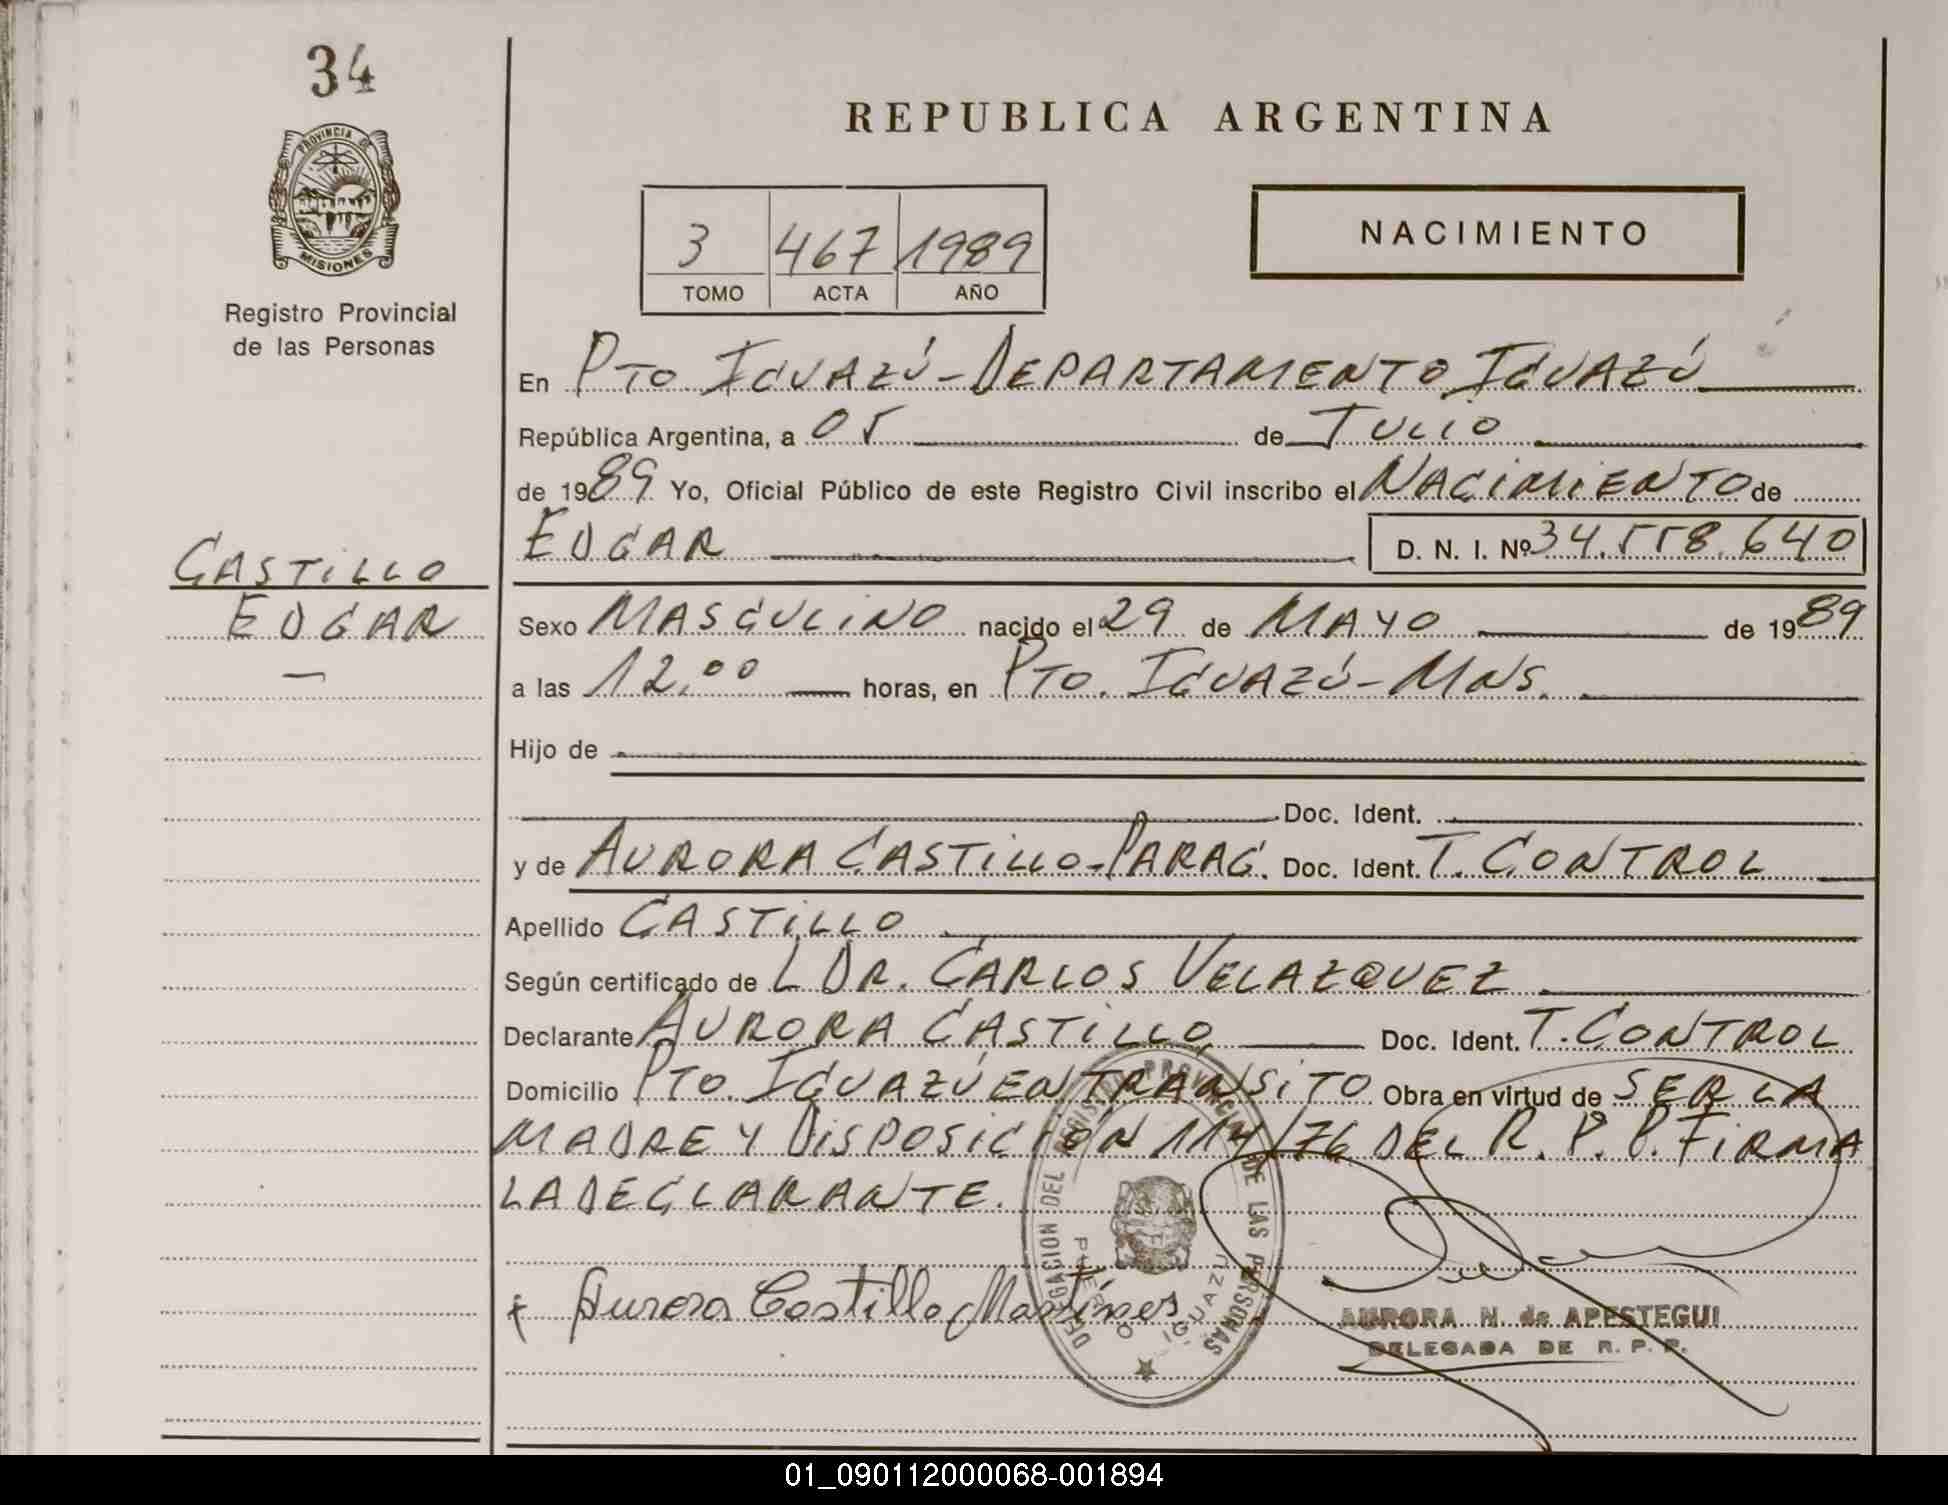 34
PROVINCIA DE
MISIONES
Registro Provincial
de las Personas
CASTILLO
EDGAR
REPUBLICA ARGENTINA
3 467 1989
TOMO ACTA AÑO
NACIMIENTO
En PTO IGUAZÚ - DEPARTAMENTO IGUAZÚ
República Argentina, a 05 de JULIO
de 1989 Yo, Oficial Público de este Registro Civil inscribo el NACIMIENTO de
EDGAR D. N. I. Nº 34.558.640
Sexo MASCULINO nacido el 29 de MAYO de 1989
a las 12,00 horas, en PTO. IGUAZÚ - MNS.
Hijo de
Doc. Ident.
y de AURORA CASTILLO - PARAG. Doc. Ident. T. CONTROL
Apellido CASTILLO
Según certificado de L DR. CARLOS VELAZQUEZ
Declarante AURORA CASTILLO Doc. Ident. T. CONTROL
Domicilio PTO. IGUAZÚ EN TRANSITO Obra en virtud de SER LA
MADRE Y DISPOSICIÓN 114/76 DEL R. P. P. FIRMA
LA DECLARANTE.
DELEGACION DEL REGISTRO PROVINCIAL DE LAS PERSONAS
PUERTO IGUAZU
Aurora Castillo Martines
AURORA N. de APESTEGUI
DELEGADA DE R. P. P.
01_090112000068-001894